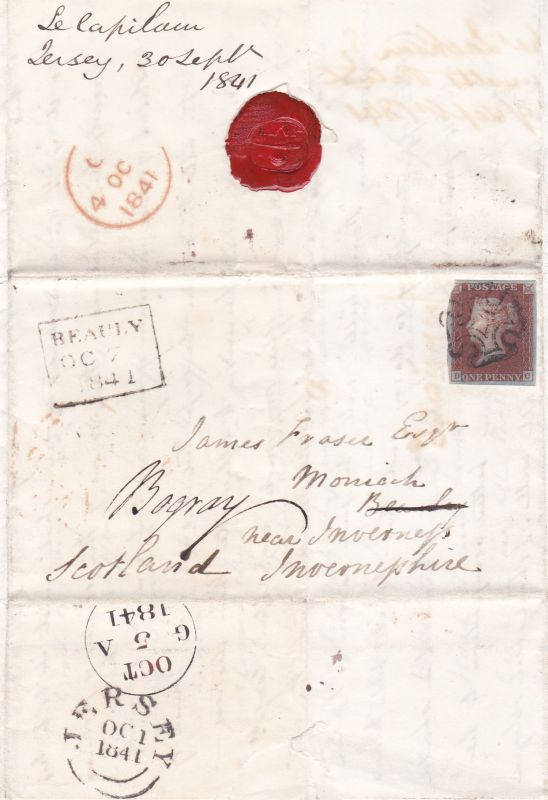 Le Capilain
Jersey, 30 Septr
1841
4 OC
1841
BEAULY
OC 7
1841
POSTAGE
D ONE PENNY C
James Fraser Esqr
Moniack
Bogroy
Beauly
near Inverness
Scotland Invernesshire
G
1841
5
A
OCT
JERSEY
OC 1
1841